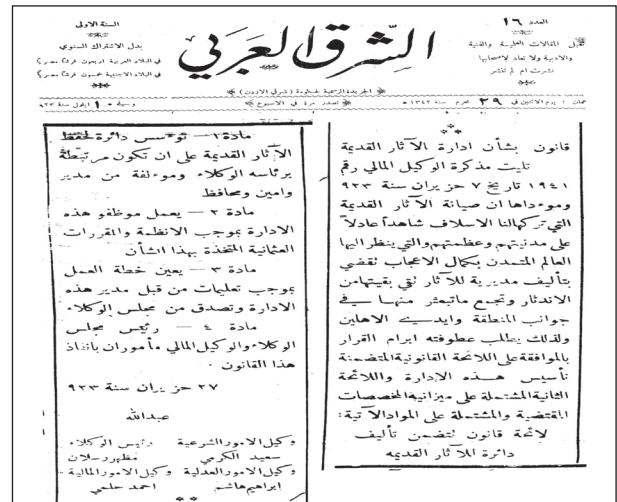 العدد ١٦
تقبل المقالات العلمية والفنية
والادبية ولا تعاد لاصحابها
نشرت ام لم تنشر
الشرق العربي
الجريدة الرسمية لحكومة (شرقي الاردن)
السنة الاولى
بدل الاشتراك السنوي
في البلاد العربية اربعون غرشاً مصرياً
في البلاد الاجنبية خمسون غرشاً مصرياً
عمان : يوم الاثنين في ٢٩ محرم سنة ١٣٤٢
تصدر مرة في الاسبوع
وسنة ١٠ ايلول سنة ٩٢٣
قانون بشأن ادارة الآثار القديمة
تليت مذكرة الوكيل المالي رقم
١٩٤١ تاريخ ٧ حزيران سنة ٩٢٣
وموءداها ان صيانة الآثار القديمة
التي تركها لنا الاسلاف شاهداً عادلاً
على مدنيتهم وعظمتهم والتي ينظر اليها
العالم المتمدن بكمال الاعجاب تقضي
بتأليف مديرية للآثار تقي بقيتها من
الاندثار وتجمع ماتبعثر منها في
جوانب المنطقة وايدي الاهلين
ولذلك يطلب عطوفته ابرام القرار
بالموافقة على اللائحة القانونية المتضمنة
تأسيس هذه الإدارة واللائحة
الثانية المشتملة على ميزانية المخصصات
المقتضية والمشتملة على المواد الآتية :
لائحة قانون تتضمن تأليف
دائرة للآثار القديمه
مادة ١ – توءسس دائرة لحفظ
الآثار القديمة على ان تكون مرتبطة
برئاسه الوكلاء وموءلفة من مدير
وامين ومحافظ
مادة ٢ – يعمل موظفو هذه
الادارة بموجب الانظمة والمقررات
العثمانية المتخذة بهذا الشأن
مادة ٣ – يعين خطة العمل
بموجب تعليمات من قبل مدير هذه
الادارة وتصدق من مجلس الوكلاء
مادة ٤ – رئيس مجلس
الوكلاء والوكيل المالي مأموران بانفاذ
هذا القانون .
٢٧ حزيران سنة ٩٢٣
عبدالله
وكيل الامور الشرعية رئيس الوكلاء
سعيد الكرمي مظهر رسلان
وكيل الامور العدلية وكيل الامور المالية
ابراهيم هاشم احمد حلمي